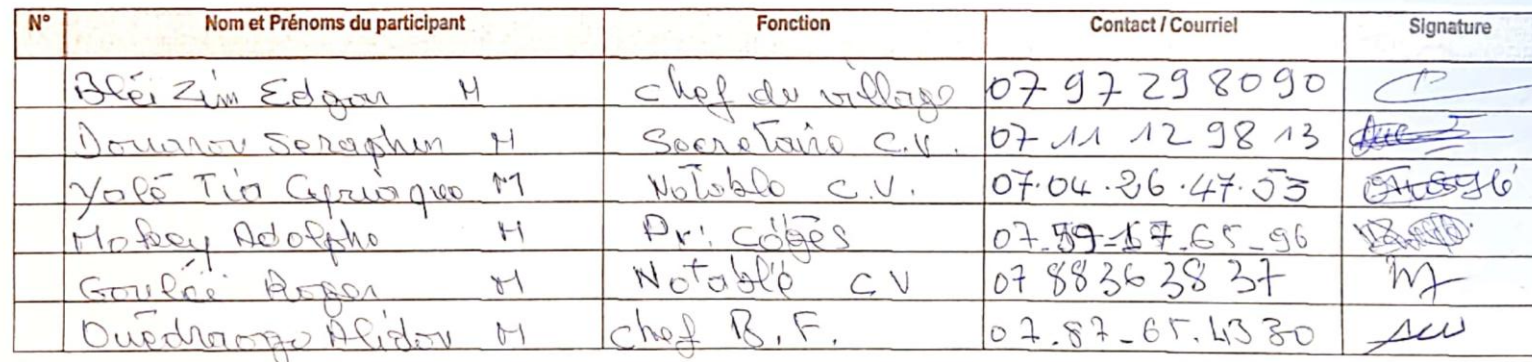 N° Nom et Prénoms du participant Fonction Contact / Courriel Signature
Bléi Zim Edgar M chef du village 07 97 29 80 90
Douanou Seraphin M Secretaire C.V. 07 11 12 98 13
Yolé Tia Cyriaque M Notable C.V. 07.04.26.47.53
Adolphe M Pr: cogès 07.59-67.65-96
Gouléi Roger M Notable CV 07 88 36 38 37
Ouédraogo Alidou M chef B.F. 07.87-65.43 30